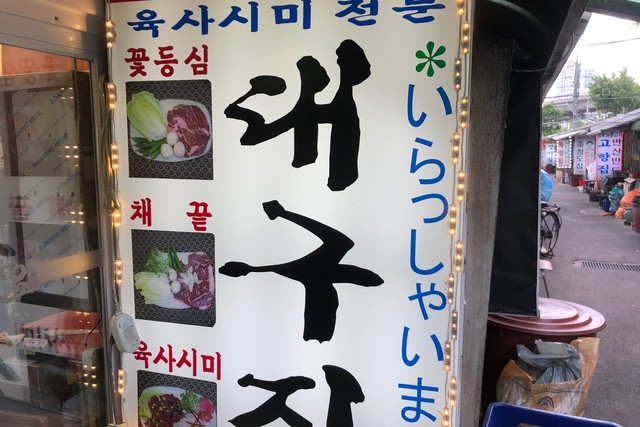 육사시미 전문
꽃등심
채 끝
육사시미
대구집
*いらっしゃいま
고향집